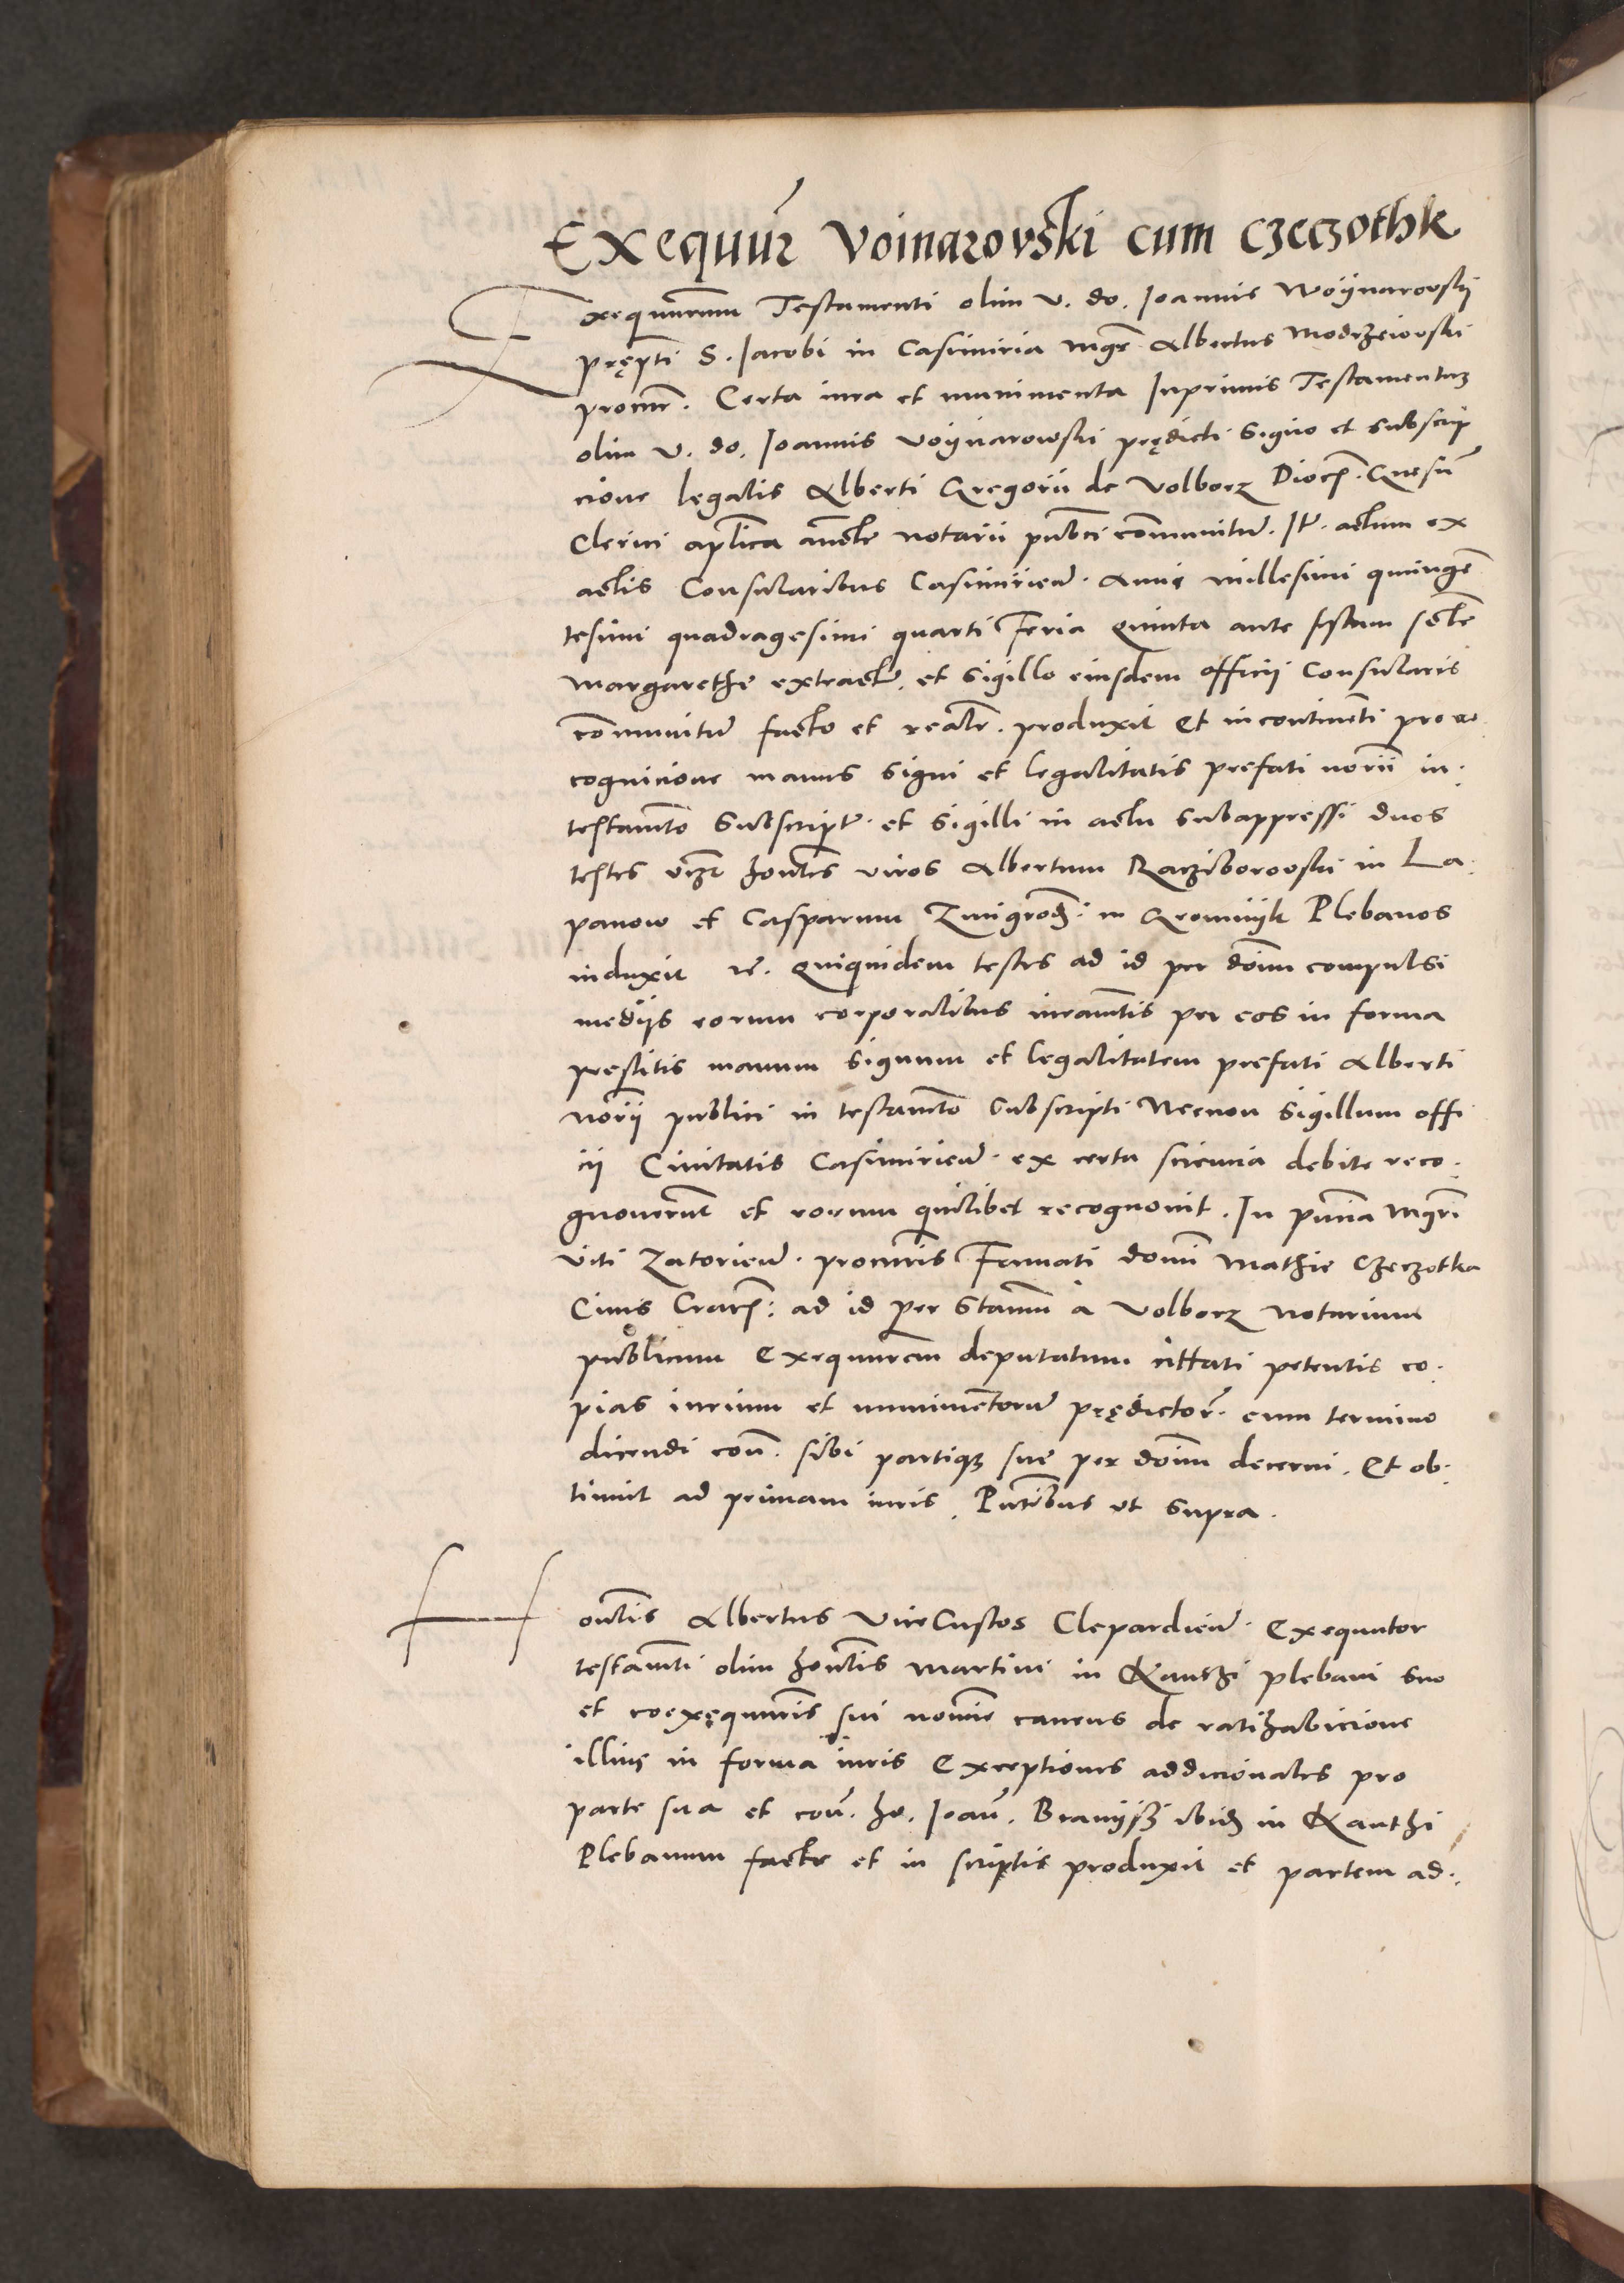 Exequu͞r voinarovski cum czeczothk
Exequutorum Testamenti olim v. do. Ioannis Woÿnarovskÿ
prępti S. Iacobi in Casimiria mgr͞ Albertus Modrzeiovski
procur͞. Certa iura et munimenta Inprimis Testamentuꝫ
olim v. do. Ioannis Voÿnarowski prędicti signo et subscrip
cione legalis Alberti Gregorii de Volborz Dioc͞. Gnesn͞
Clerici aplica͞ aucte͞ notarii pub͞ci com͞unitu͞. It͞. actum ex
actis Consularibus Casimirien͞. Anni millesimi quingen͞
tesimi quadragesimi quarti Feria Quinta ante festum scte͞
Margarethe extractu͞. et sigillo eiusdem officij Consularis
com͞unitu͞ facto et realr͞. produxit Et incontinen͞ti pro re
cognicione manus signi et legalitatis prefati norii͞ in
testam͞to subscript͞. et sigilli in actu subappressi duos
testes viꝫt honl͞es viros Albertum Racziborovski in La
panow et Casparum Zmigrod͞. in Gromnÿk Plebanos
induxit rc͞. Quiquidem testes ad id per dom͞ compulsi
medijs eorum corporalibus iuram͞tis per eos in forma
prestitis manum signum et legalitatem prefati Alberti
norij͞ publici in testam͞to subscripti Necnon sigillum offi
cij Civitatis Casimirien͞. ex certa sciencia debite reco
gnoverun͞t et eorum quilibet recognovit. In pn͞cia Mgri͞
Viti Zatorien͞. procuris͞ Famati domi͞ Mathie Czeczotka
Civis Crac͞. ad id per Stam͞ a Volborz notarium
publicum Exequuorem deputatum cittati petentis co
pias iurium et munimen͞toru͞ prędictor͞. cum termino
dicendi con͞. sibi partiqꝫ sue per dom͞ decerni. Et ob
tinuit ad primam iuris. Pn͞tibus vt supra.
Honl͞is Albertus ViceCustos Clepardien͞. Exequutor
testam͞ti olim honl͞is Martini in Kanthi plebani suo
et coexequu͞ris sui nom͞ie cavens de ratihabicione
illius in forma iuris Exceptiones addicionales pro
parte sua et con͞. ho. Ioan͞. Branÿss ibid͞ in Kanthi
Plebanum facto et in scriptis produxit et partem ad